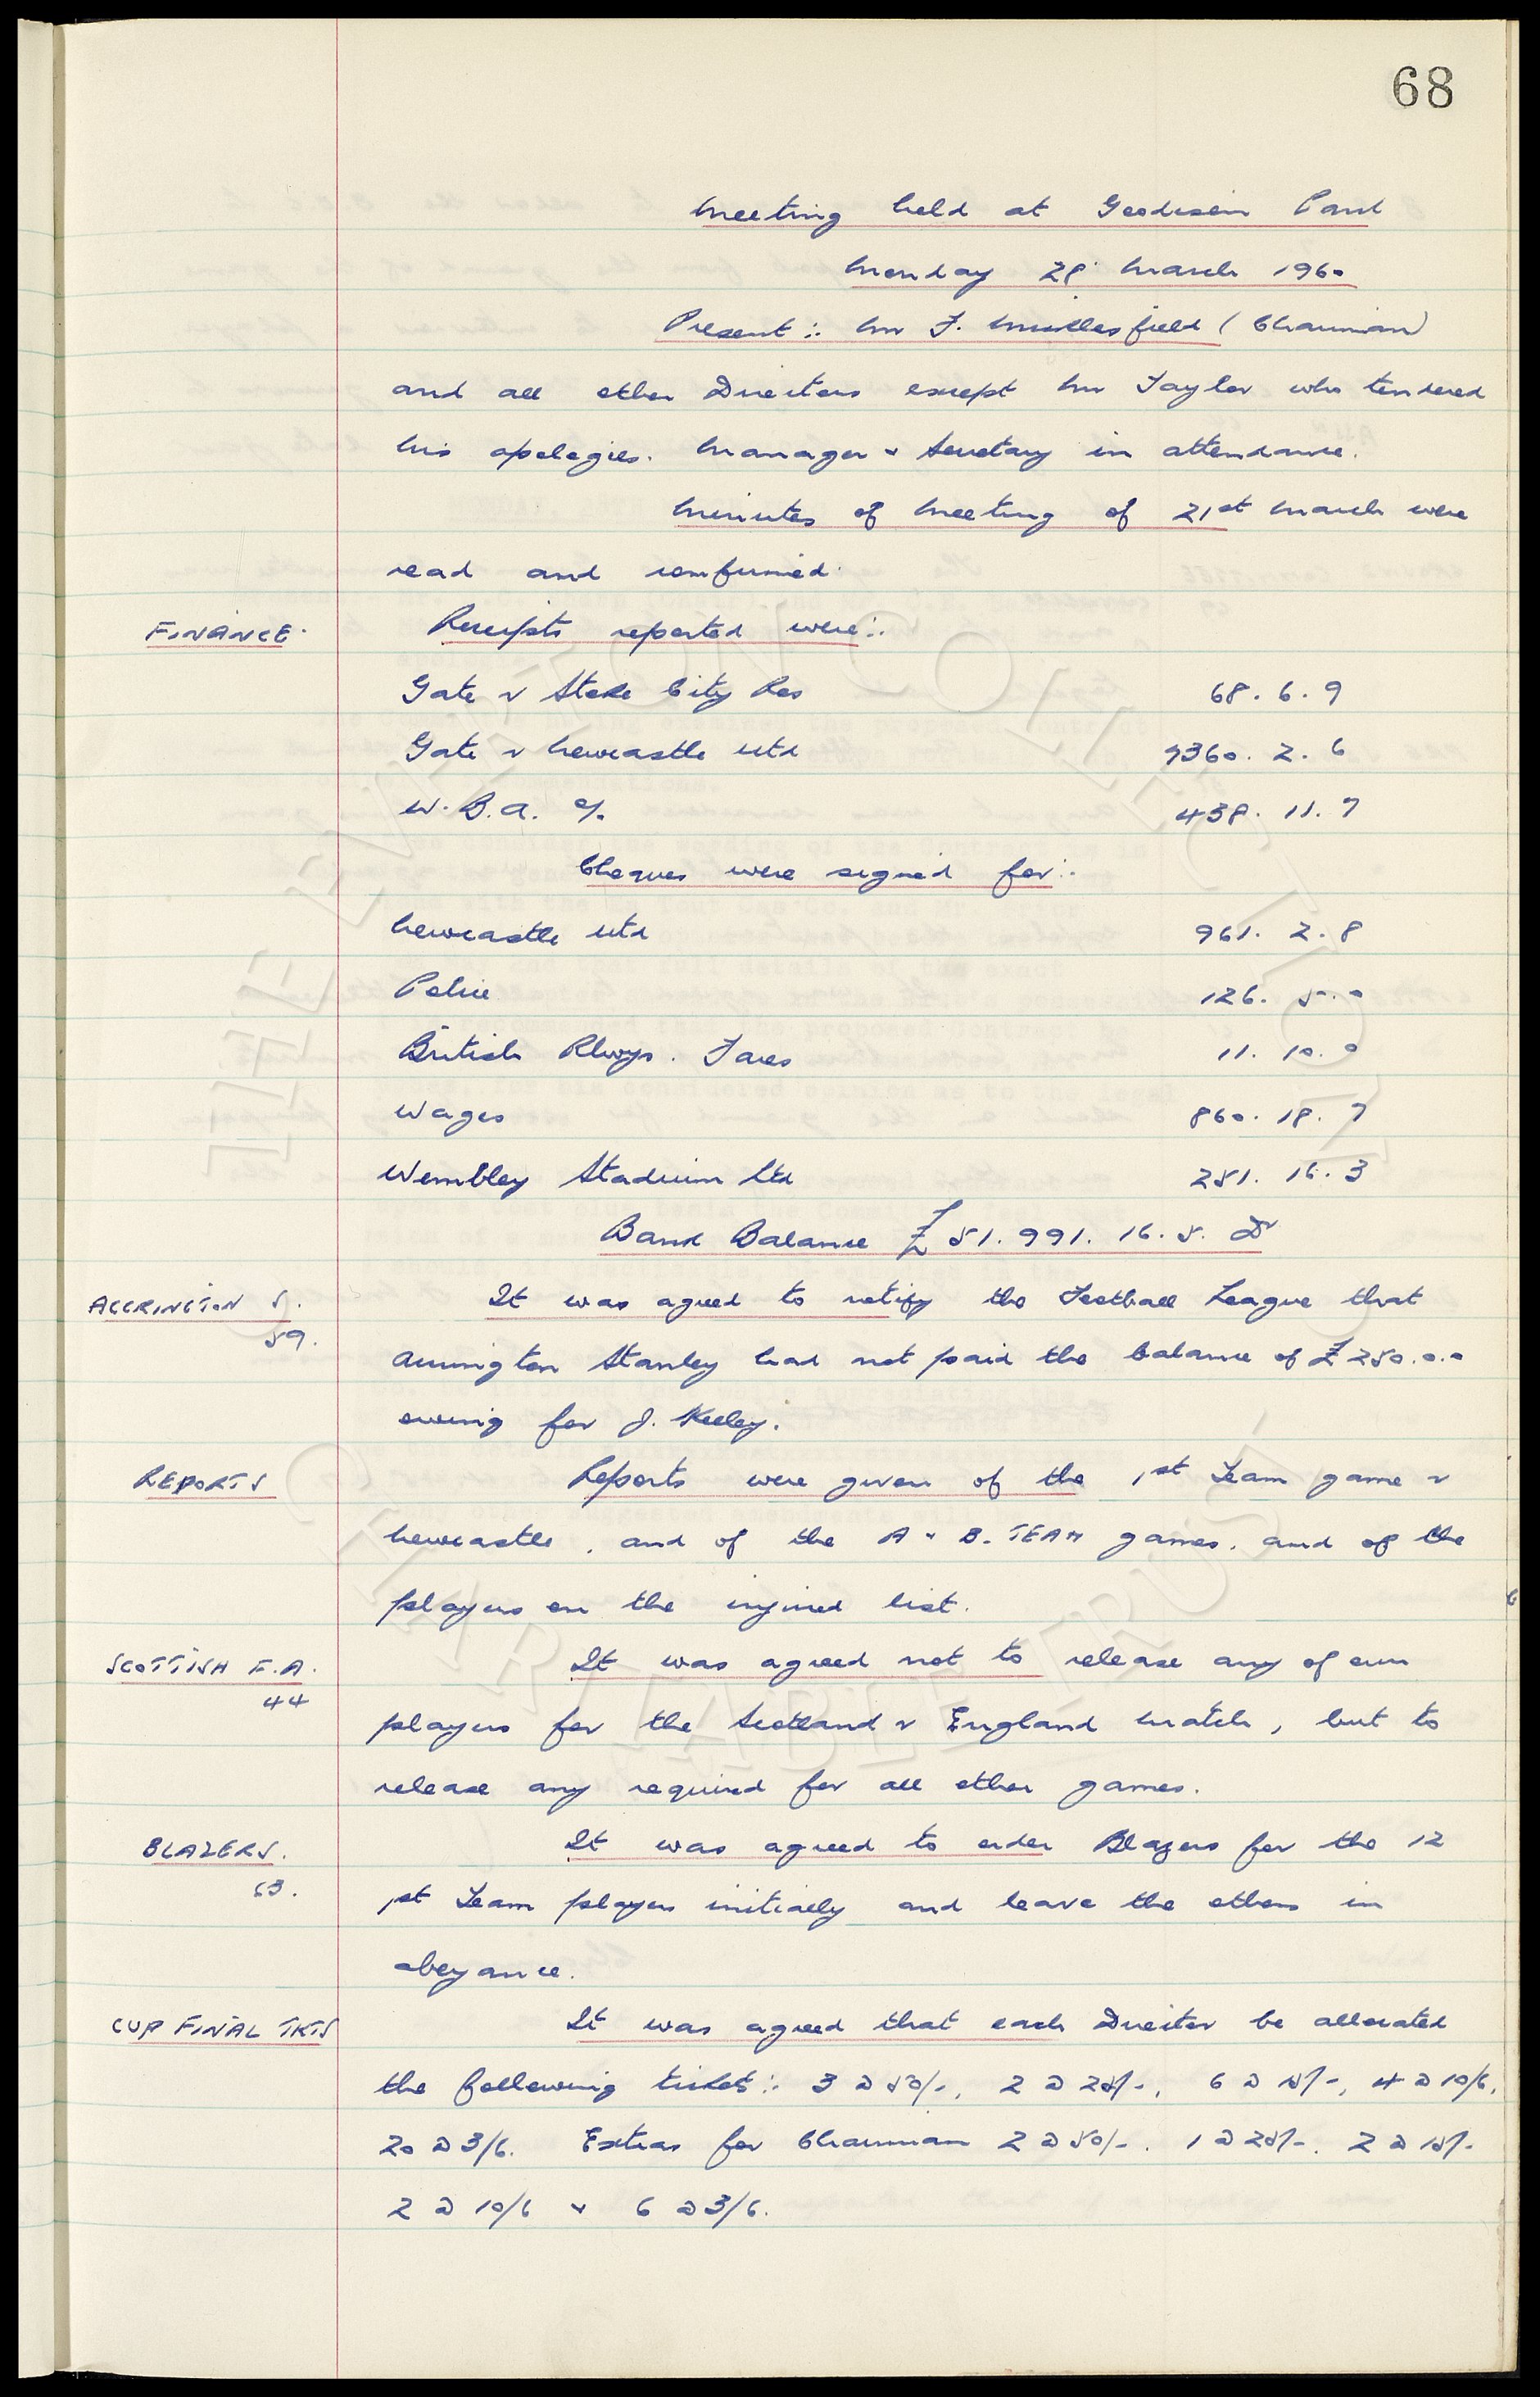 68
Meeting held at Goodison Park
Monday 28 March 1960
Present :- Mr F. Micklesfield (Chairman)
and all other Directors except Mr Taylor who tendered
his apologies. Manager & Secretary in attendance.
Minutes of Meeting of 21st March were
read and confirmed.
FINANCE. Receipts reported were :-
Gate v Stoke City Res 68. 6. 9
Gate v Newcastle Utd 7360. 2. 6
W.B.A. % 438. 11. 7
Cheques were signed for :-
Newcastle Utd 961. 2. 8
Police 126. 5. 0
British Rlwys. Fares 11. 10. 0
Wages 860. 18. 7
Wembley Stadium Ltd 251. 16. 3
Bank Balance £51.991. 16. 5. Dr
ACCRINGTON S. It was agreed to notify the Football League that
59.
Accrington Stanley had not paid the balance of £250.0.0
owing for J. Keeley.
REPORTS Reports were given of the 1st Team game v
Newcastle, and of the A & B. TEAM games, and of the
players on the injured list.
SCOTTISH F.A. It was agreed not to release any of our
44
players for the Scotland v England match, but to
release any required for all other games.
BLAZERS. It was agreed to order Blazers for the 12
63.
1st Team players initially and leave the others in
abeyance.
CUP FINAL TKTS It was agreed that each Director be allocated
the following tickets :- 3 @ 50/-, 2 @ 25/-, 6 @ 15/-, 4 @ 10/6,
20 @ 3/6. Extras for Chairman 2 @ 50/-. 1 @ 25/-. 2 @ 15/-
2 @ 10/6 & 6 @ 3/6.